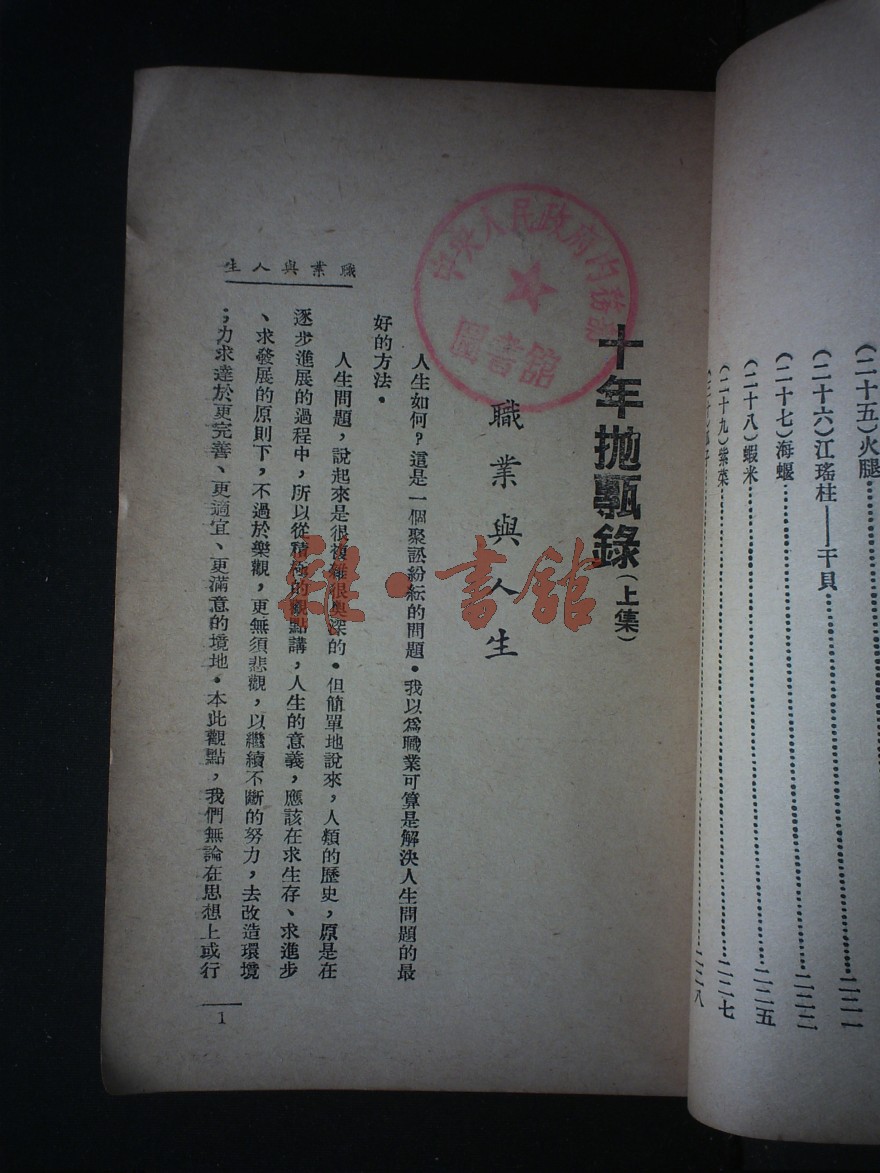 (二十五)火腿……………………二二一
(二十六)江瑤柱——干貝……………………二二二
(二十七)海蜒……………………二二二
(二十八)蝦米……………………二二五
(二十九)紫菜……………………二二七
二二八
十年拋甎錄(上集)
職業與人生
人生如何?這是一個聚訟紛紜的問題。我以爲職業可算是解決人生問題的最
好的方法。
人生問題,說起來是很複雜很奧深的。但簡單地說來,人類的歷史,原是在
逐步進展的過程中,所以從積極的觀點講,人生的意義,應該在求生存、求進步
、求發展的原則下,不過於樂觀,更無須悲觀,以繼續不斷的努力,去改造環境
;力求達於更完善、更適宜、更滿意的境地。本此觀點,我們無論在思想上或行
職業與人生
1
中央人民政府內務部
圖書館
雜·書館